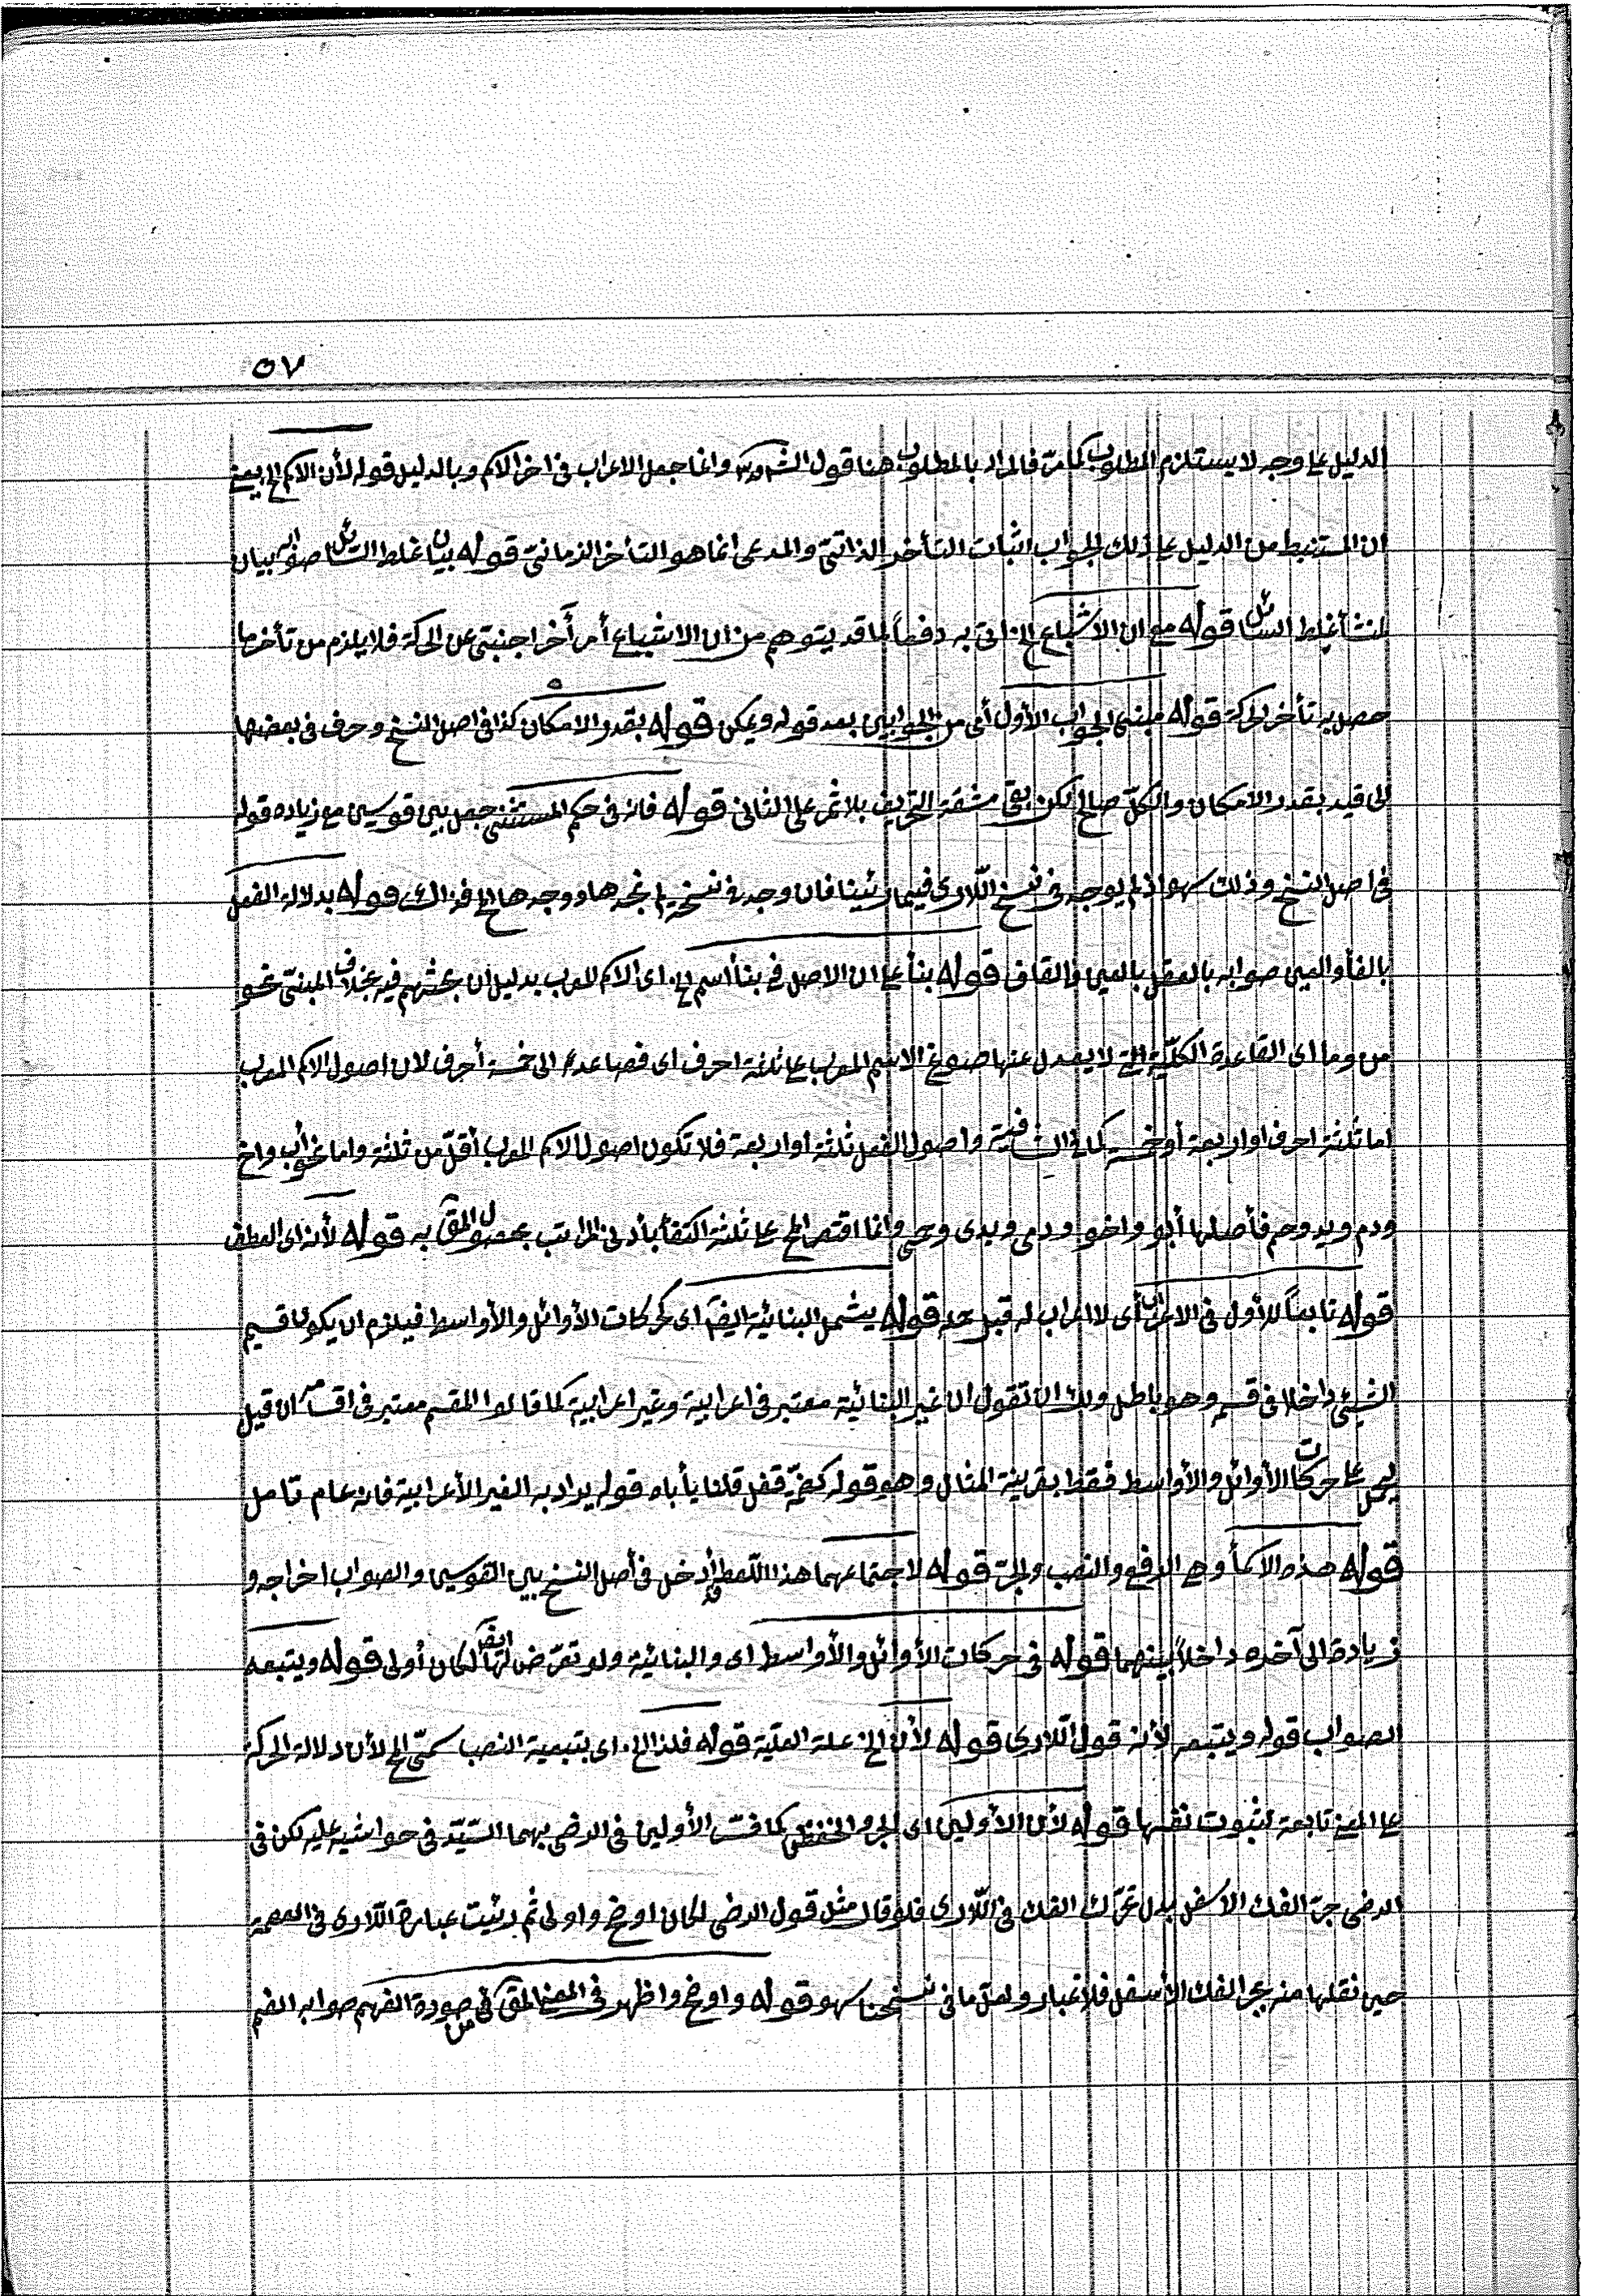 ٥٧
الدليل على وجه لا يستلزم المطلوب كما مرّ فالمراد بالمطلوب هنا قول الشـ وانما جعل الاعراب فى اخر الاسم وبالدليل قوله لأن الاسم الخ يعنى
ان المستنبط من الدليل على ذلك الجواب اثبات التأخر الذاتىّ والمدعى انما هو التأخر الزمانىّ قوله بيان غلط السائل صوابه بيان
لمنشأ غلط السائل قوله مع ان الاشباع الخ اتى به دفعاً لما قد يتوهم من ان الاشباع أمر آخر اجنبىّ عن الحركة فلا يلزم من تأخر ما
حصل به تأخر الحركة قوله مبنى الجواب الأول أى من الجوابين بعد قوله ويمكن قوله بقدر الامكان كذا فى اصل النسخ وحرف فى بعضها
الى قيد بقدر الامكان والكلّ صالح لكن بقى مشقة التحريف بلا ثمر على الثانى قوله فانه فى حكم المستثنى جعل بين قوسين مع زياده قوله
فى اصل النسخ وذلك سهو اذ لم يوجد فى نسخ اللّارى فيما رئينا فان وجد نسخة لم نجدها ووجدها الخ فذاك قوله بدلالة الفعل
بالفأ والعين صوابه بالعقل بالعين والقاف قوله بنأ على ان الاصل فى بنأ اسم الخ اى الاسم المعرب بدليل ان بحثهم فيه بخلاف المبنىّ نحو
من وما اى القاعدة الكلّيّة التى لا يعدل عنها صوغ الاسم المعرب على ثلثة احرف اى فصاعدا الى خمسة أحرف لان اصول الاسم المعرب
اما ثلثة احرف او اربعة أو خمسة كما فى الشافية واصول الفعل ثلثة او اربعة فلا تكون اصول الاسم المعرب أقلّ من ثلثة واما نحو أب واخ
ودم ويد وحم فأصلها أبو واخو ودمى ويدى وحمى وانما اقتصر الخ على ثلثة اكتفأ بأدنى المراتب بحصول المقـ به قوله لأنه اى العطف
قوله تابعاً للأول فى الاعراب أى لا اعراب له قبل قوله يشمل البنائية ايضاً اى كحركات الأوائل والأواسط فيلزم ان يكون قسيم
الشيئ داخلا فى قسمه وهو باطل ولك ان تقول ان غير البنائية معتبر فى اعرابية وغير اعرابية كما قالوا المقسم معتبر فى اقسامه ان قيل
يحمل على حركات الأوائل والأواسط فقط بقرينة المثال وهو قوله كضمّة قفل قلنا يأباه قوله يراد به الغير الأعرابية فانه عام تامل
قوله هذه الاسمأ وهى الرفع والنصب والجرّ قوله لاجتماعهما هذا اللّفظ قد أدخل فى أصل النسخ بين القوسين والصواب اخراجه و
زيادة الى آخره داخلاً بينهما قوله فى حركات الأوائل والأواسط اى والبنائية ولو تعرّض لها ايضا لكان أولى قوله ويتبعه
الصواب قوله ويتبعه لأنه قول اللّارى قوله لأن الخ علة العلّية قوله فلذا الخ اى بتبعية النصب سمّى الخ لأن دلالة الحركة
على المعنى تابعة لثبوت نفسها قوله لأن الأولين اى الجر والخفض كما فسّر الأولين فى الرضى بهما السّيّد فى حواشيه عليه لكن فى
الرضى جرّ الفك الاسفل بدل تحرّك الفك فى اللّارى فلو قال مثل قول الرضى لكان اوضح واولى ثم رئيت عبارة اللّارى فى
حين نقلها منه بجر الفك الأسفل فلا غبار ولعلّ ما فى نسختنا سهو قوله واوضح واظهر فى المعنى المقـ فى صورة الفهم صوابه الضم